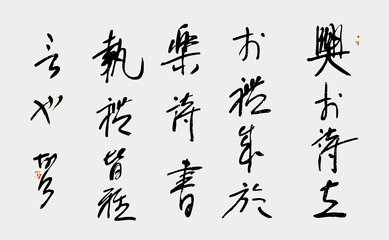 興於詩立
於禮成於
樂詩書
執禮皆雅
言也